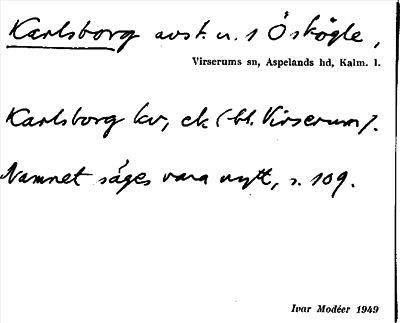 Karlsborg avs. u. 1 Öskögle,
Virserums sn, Aspelands hd, Kalm. l.
Karlsborg kv, ek (bl. Virserum).
Namnet säges vara nytt, s. 109.
Ivar Modéer 1949